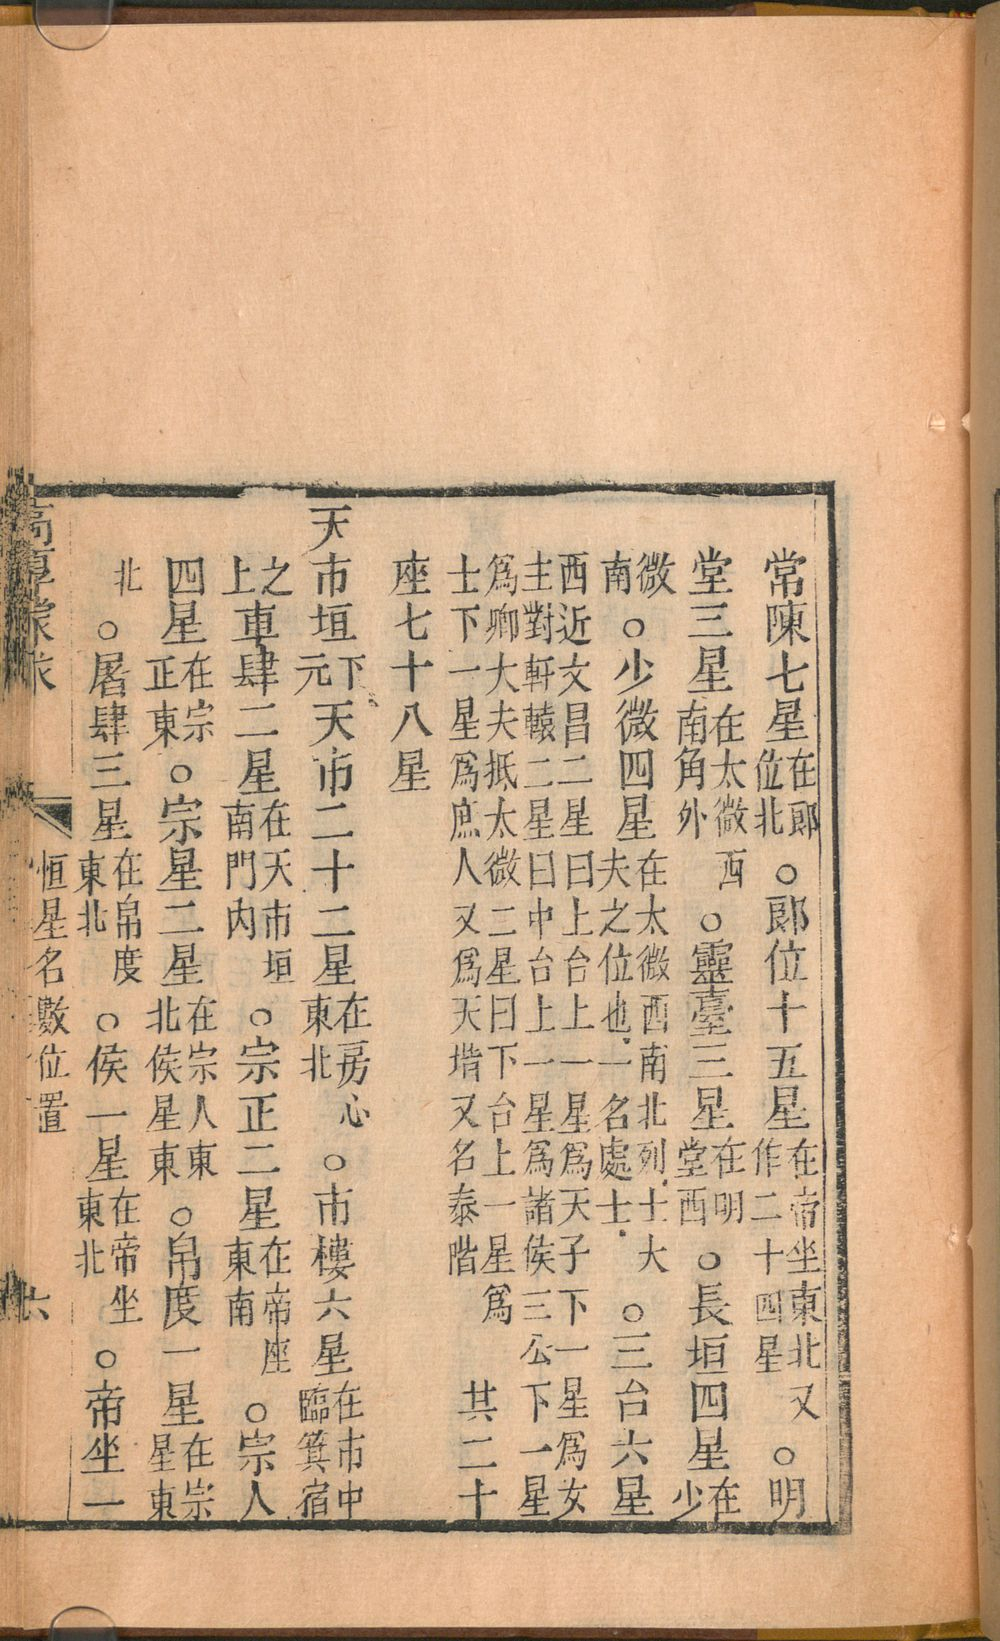 常陳七星在郞位北○郞位十五星在帝坐東北又作二十四星○明
堂三星在太微西南角外○靈臺三星在明堂西○長垣四星在少
微南○少微四星在太微西南北列士大夫之位也一名處士○三台六星
西近文昌二星曰上台上一星爲天子下一星爲女主對軒轅二星曰中台上一星爲諸侯三公下一星
爲卿大夫抵太微二星曰下台上一星爲士下一星爲庶人又爲天堦又名泰階其二十
座七十八星
天市垣下元天市二十二星在房心東北○市樓六星在市中臨箕宿
之上車肆二星在天市垣南門內○宗正二星在帝座東南○宗人
四星在宗正東○宗星二星在宗人東北侯星東○帛度一星在宗星東
北○屠肆三星在帛度東北○侯一星在帝坐東北○帝坐一
高厚蒙求 恒星名數位置 六